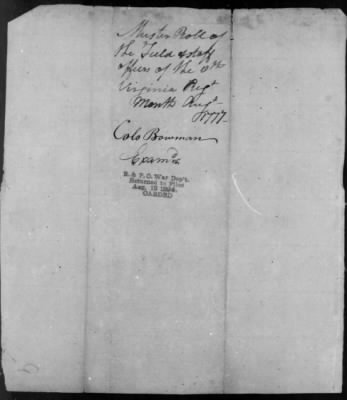 Muster Roll of
the Field & staff
officers of the 8th
Virginia Regt
Month Augt
1777
Colo Bowman
Examd
R. & P. O. War Dep't.
Returned to Files
Aug. 13
CARDED